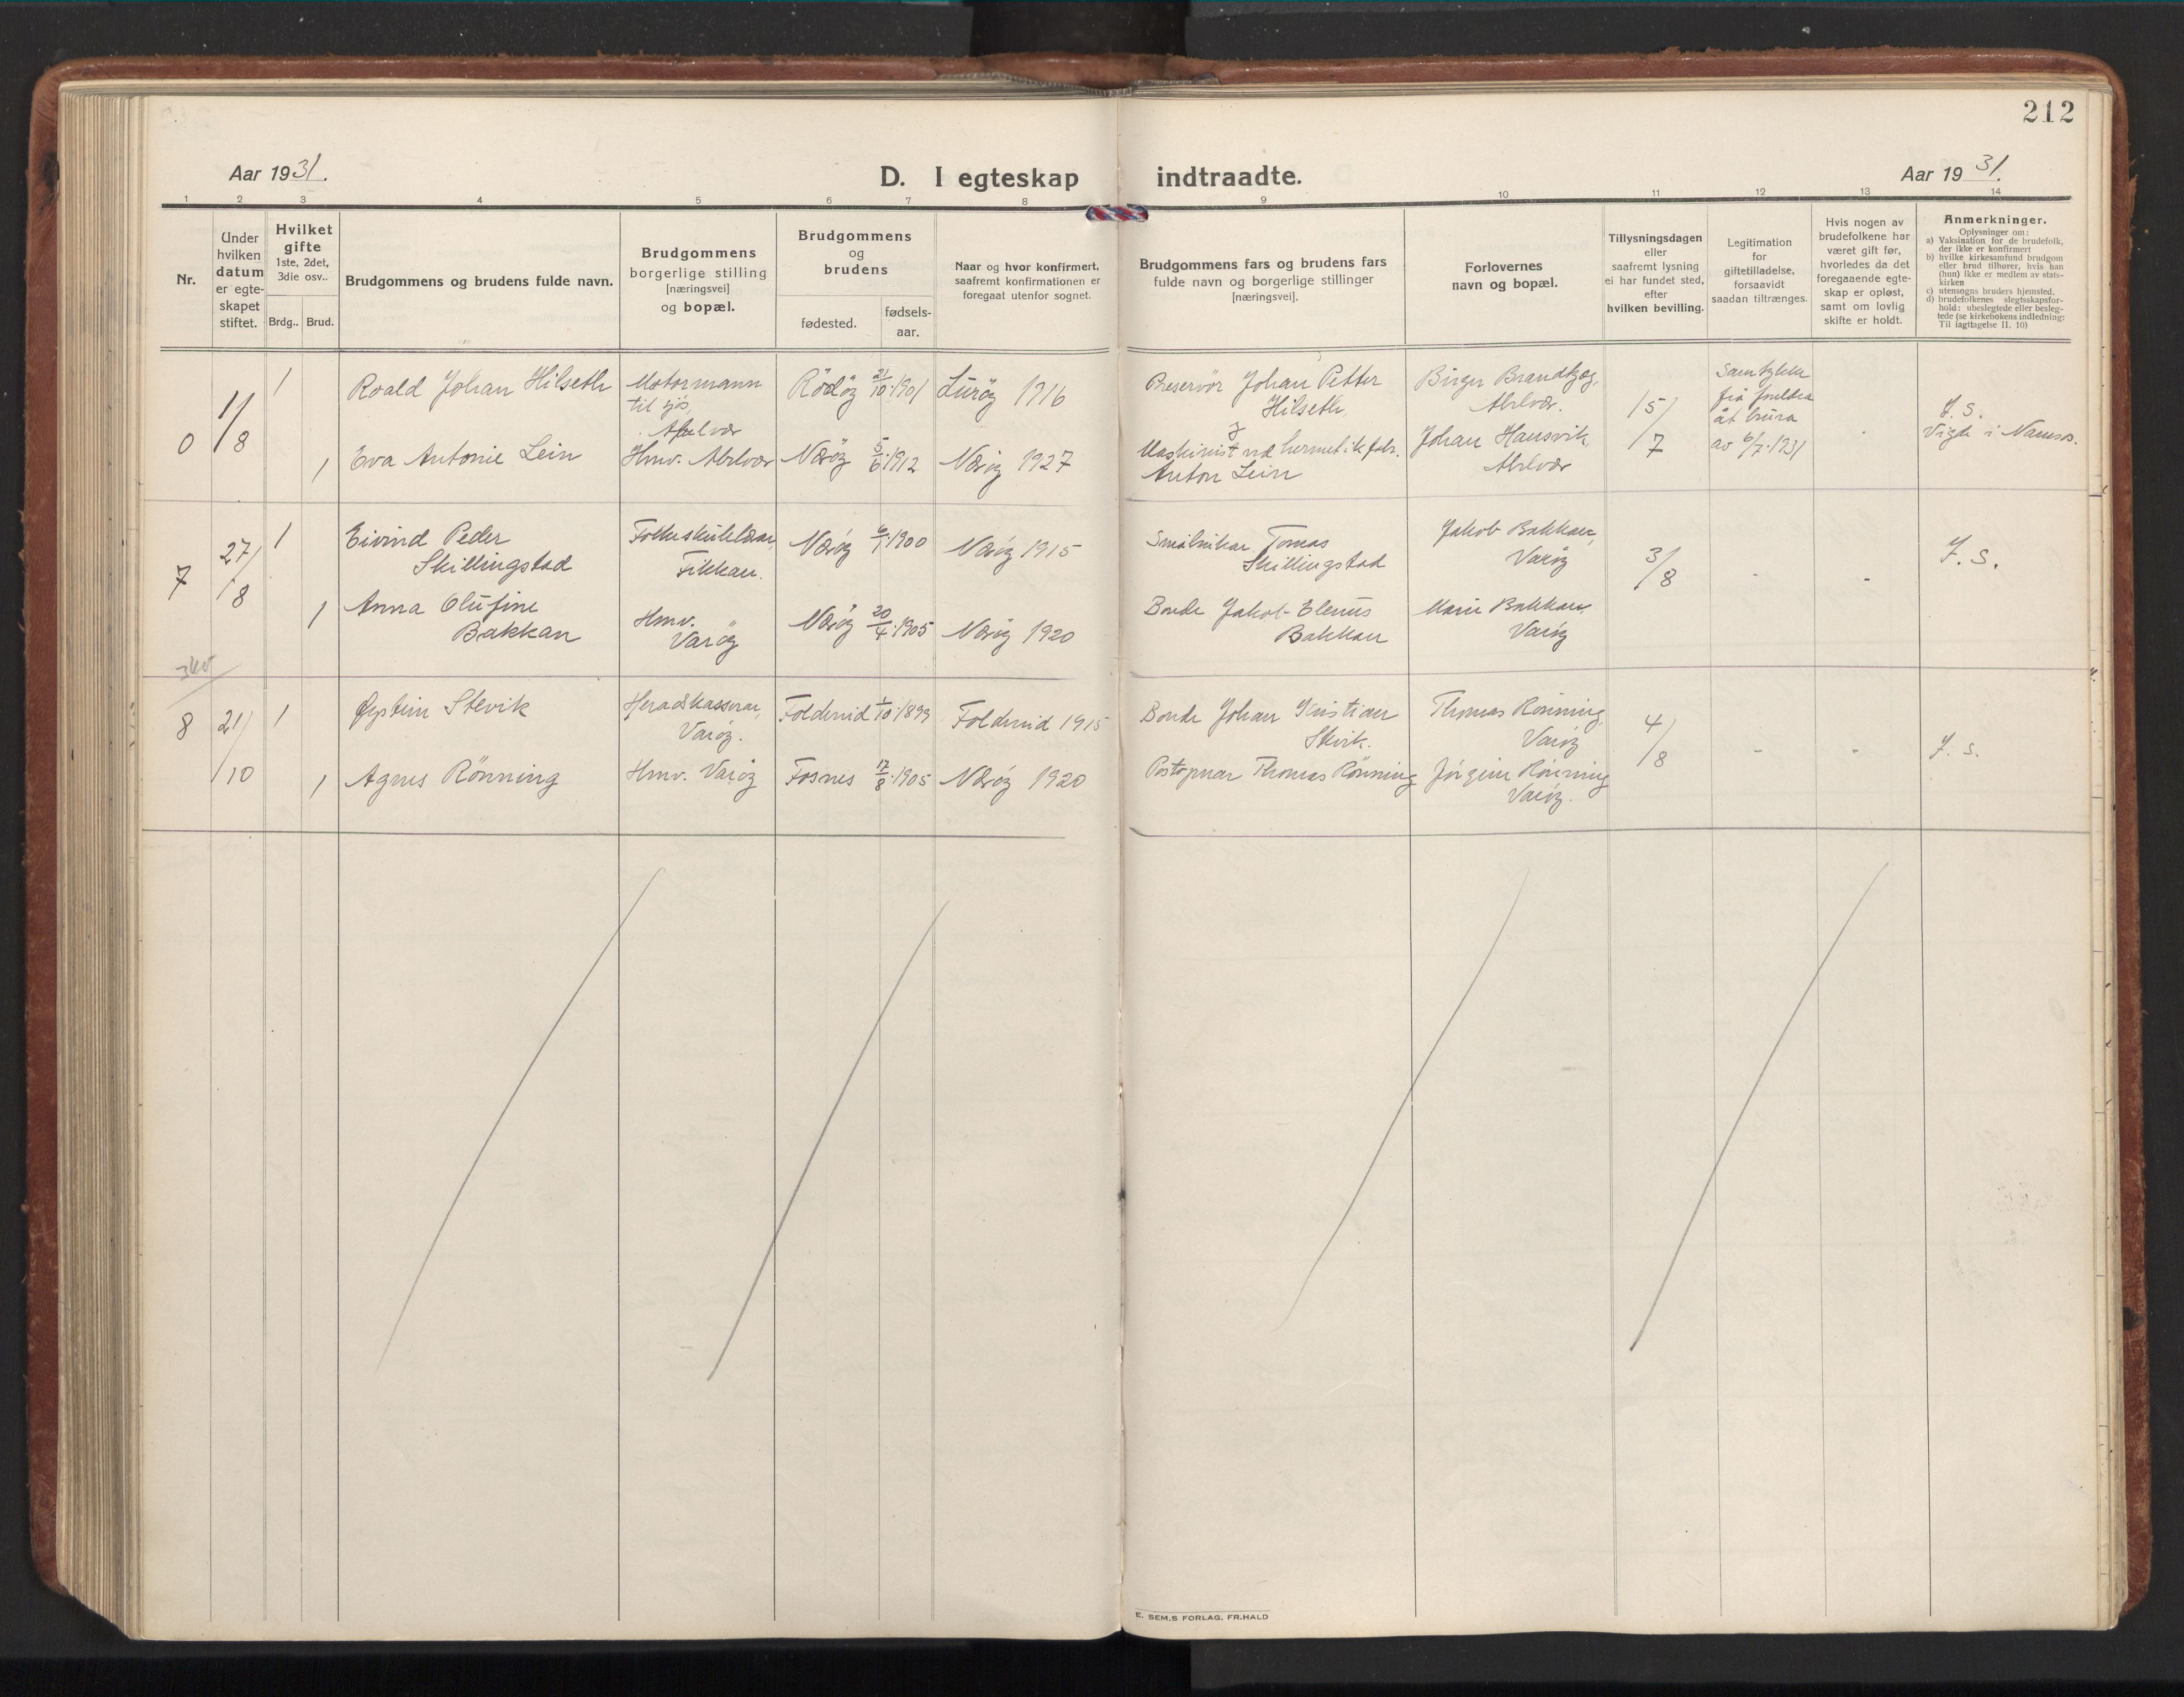 212
Aar 1931.
D. I egteskap indtraadte.
Aar 1931.
1 2 3 4 5 6 7 8 9 10 11 12 13 14
Nr.
Under hvilken datum er egte-skapet stiftet.
Hvilket gifte
1ste, 2det, 3die osv..
Brdg.. Brud.
Brudgommens og brudens fulde navn.
Brudgommens
borgerlige stilling
[næringsvei]
og bopæl.
Brudgommens
og
brudens
fødested.
fødsels-
aar.
Naar og hvor konfirmert,
saafremt konfirmationen er
foregaat utenfor sognet.
Brudgommens fars og brudens fars
fulde navn og borgerlige stillinger
[næringsvei].
Forlovernes
navn og bopæl.
Tillysningsdagen
eller
saafremt lysning
ei har fundet sted,
efter
hvilken bevilling.
Legitimation
for
giftetilladelse,
forsaavidt
saadan tiltrænges.
Hvis nogen av
brudefolkene har
været gift før,
hvorledes da det
foregaaende egte-
skap er opløst,
samt om lovlig
skifte er holdt.
Anmerkninger.
Oplysninger om:
a) Vaksination for de brudefolk,
der ikke er konfirmert
b) hvilke kirkesamfund brudgom
eller brud tilhører, hvis han
(hun) ikke er medlem av stats-
kirken
c) utensogns bruders hjemsted.
d) brudefolkenes slegtsskapsfor-
hold: ubeslegtede eller besleg-
tede (se kirkebokens indledning:
Til iagttagelse II. 10)
0
1/8
1
Roald Johan Hilseth
Motormann
til sjøs,
Abelvær
Rödöy 21/10.1901
Luröy 1916
Preservör Johan Petter
Hilseth.
Birger Brandtzæg,
Abelvær.
15/7
Samtykke
frå foreldra
åt brura
av 6/7.1931
J. S.
Vigde i Namsos.
1
Eva Antonie Lein
Hmv. Abelvær
Næröy 5/6.1912
Næröy 1927
Maskinist ved hermetikfabr.
Anton Lein
Johan Hansvik
Abelvær
7
27/8
1
Eivind Peder
Skillingstad
Folkeskulelærar,
Tikkan.
Næröy 6/1.1900
Næröy 1915
Småbrukar Tomas
Skillingstad
Jakob Bakkan,
Varöy
3/8
J. S.
1
Anna Olufine
Bakkan
Hmv.
Varöy
Næröy 20/4.1905
Næröy 1920
Bonde Jakob Elenus
Bakkan
Marie Bakkan
Varöy
8
21/10
1
Øystein Stevik
Heradskasserar,
Varöy.
Foldereid 1/10.1899
Foldereid 1915
Bonde Johan Kristian
Stevik.
Thomas Rönning,
Varöy
4/8
J. S.
1
Agnes Rönning
Hmv. Varöy
Fosnes 17/8.1905
Næröy 1920
Postopnar Thomas Rönning
Jörgine Rönning
Varöy.
E. SEM,S FORLAG, FR.HALD